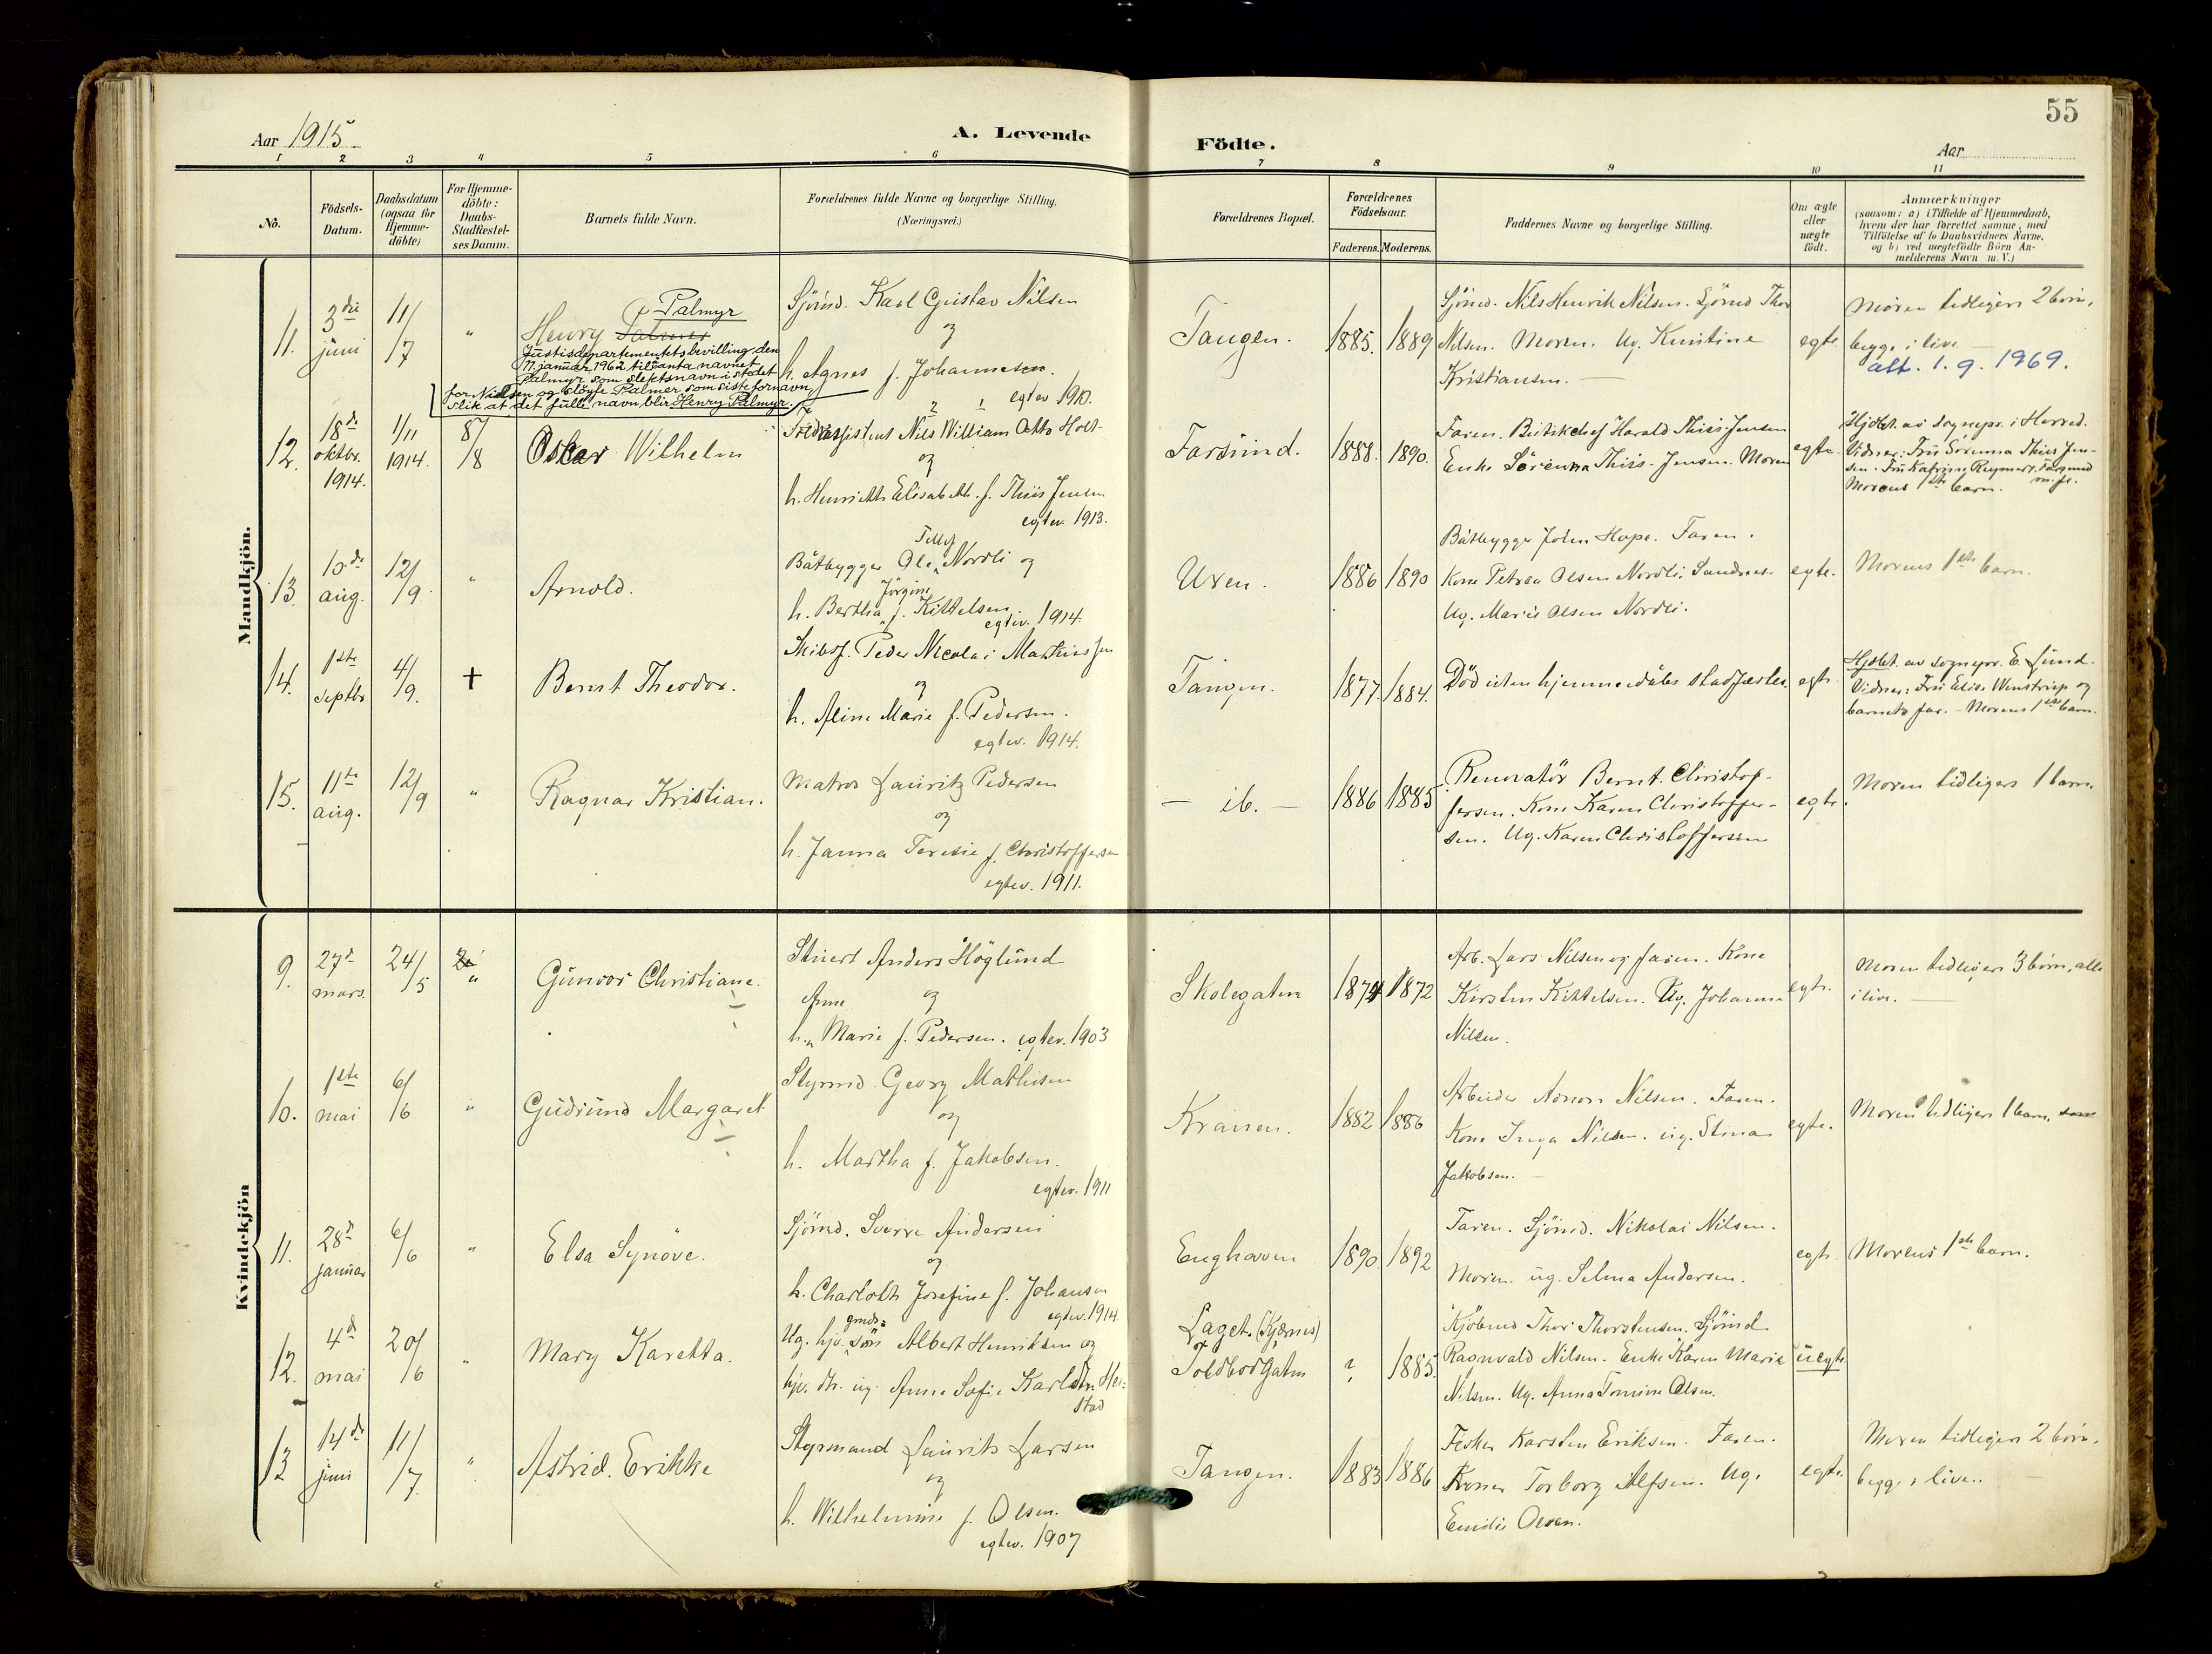 55
Aar 1915
A. Levende
Födte.
Aar
1 2 3 4 5 6 7 8 9 10 11
No.
Födsels-
Datum.
Daabsdatum
(ogsaa for
Hjemme-
döbte)
For Hjemme-
döbte:
Daabs-
Stadfæstel-
ses Datum.
Barnets fulde Navn.
Forældrenes fulde Navne og borgerlige Stilling.
(Næringsvei.)
Forældrenes Bopæl.
Forældrenes
Födselsaar.
Faderens. Moderens.
Faddernes Navne og borgerlige Stilling.
Om ægte
eller
uægte
födt.
Anmærkninger
(saasom: a) i Tilfælde af Hjemmedaab,
hvem der har forrettet samme, med
Tilföielse af to Daabsvidners Navne,
og b) ved uægtefödte Börn An-
melderens Navn m. V.)
Mandkjön.
11.
3die
juni
11/7
"
Palmyr
Henry Palmer
Justisdepartementets bevilling den
17. januar 1962 til å anta navnet
Palmyr som slektsnavn i stedet
for Nielsen og sløyfe Palmer som siste fornavn,
slik at det fulle navn blir Henry Palmyr.
Sjömd. Karl Gustav Nilsen
og
h. Agnes f. Johannesen.
egtev 1910.
Tangen.
1885. 1889
Sjömd. Nils Henrik Nilsen. Sjömd Thor
Nilsen. Moren. Ug. Kristine
Kristiansen.
egte.
Moren tidligere 2 börn,
begge i live
att. 1.9.1969.
12.
18de
oktbr.
1914.
1/11
1914.
8/8
Oskar Wilhelm
2 1
Nils William Otto Holt
og
h. Henriette Elisabeth. f. Thiis Jensen
egtev. 1913.
Farsund.
1888. 1890.
Faren. Butikchef Harald Thiis Jensen
Enke Sörenna Thiis-Jensen. Moren
egte.
Hjdöbt. av sognepr. i Herred.
Vidner: Fru Sörenna Thiis Jen-
sen. Fru Katrine Reymert. Farsund
Morens 1ste barn.
13.
10de
aug.
12/9
"
Arnold.
Telly
Båtbygger Ole Nordli og
Jörgine
h. Bertha f. Kittelsen.
egtev. 1914.
Uren.
1886 1890
Båtbygger John Hope. Faren.
Kone Petrea Olsen Nordli, Sandnes.
Ug. Marie Olsen Nordli.
egte.
Morens 1ste barn.
14.
1ste
septbr
4/9.
+
Bernt Theodor.
Skibsf. Peder Nicolai Mathiassen
og
h. Aline Marie f. Pedersen.
egtev. 1914.
Tangen.
1877. 1884.
Död uten hjemmedåbs stadfæstes.
egte
Hjdöbt. av sognepr. E. Lund.
Vidner: Fru Elise Winstrup og
barnets far. - Morens 1ste barn.
15.
11te
aug.
12/9
"
Ragnar Kristian.
Matros Lauritz Pedersen
og
h. Janna Teresie f. Christoffersen
egtev. 1911.
— ib. —
1886 1885
Renovatör Bernt Christof-
fersen. Kone Karen Christoffer-
sen. Ug. Karen Christoffersen
egte.
Moren tidligere 1 barn.
Kvindekjön
9.
27de
mars.
24/5
"
Gunvor Christiane.
Stuert Anders Höglund
Anne og
h. Marie f. Pedersen. egtev. 1903
Skolegaten
1874 1872
Arb. Lars Nilsen og faren. Kone
Kirsten Kittelsen. Ug. Johanne
Nilsen.
egte.
Moren tidligere 3 börn, alle
i live.
10.
1ste
mai
6/6
"
Gudrund Margaret
Styrmd. Georg Mathisen
og
h. Martha f. Jakobsen.
egtev. 1911
Kranen.
1882 1886
Arbeider Adnon Nilsen. Faren.
Kone Inga Nilsen. ug. Stina
Jakobsen.
egte.
Moren tidligere 1 barn.
11.
28de
januar
6/6
"
Elsa Synöve.
Sjömd. Sverre Andersen
og
h. Charlotte Josefine f. Johansen
egtev. 1914
Enghaven
1890 1892
Faren. Sjömd. Nikolai Nilsen.
Moren. ug. Selma Andersen.
egte.
Morens 1ste barn.
12.
4de
mai
20/6
"
Mary Karetta.
gmds.
Ug. hjv. sön Albert Henriksen og
hjv. dtr. ug. Anne Sofie Karlsdtr. Hei-
stad
Laget. (Kjernes)
og
Toldbodgaten
? 1885.
Kjöbmd Thor Thorstensen. Sjömd
Ragnvald Nilsen. Enke Karen Marie
Nilsen. Ug. Anna Tomine Olsen.
uegte
13
14de
juni
11/7.
"
Astrid. Erikke
Styrmand Laurits Larsen
og
h. Wilhelmine f. Olsen.
egtev. 1907
Tangen.
1883 1886
Fisker Karsten Eriksen. Faren.
Koner Torborg Alfsen. Ug.
Emilie Olsen.
egte.
Moren tidligere 2 börn,
begge i live.